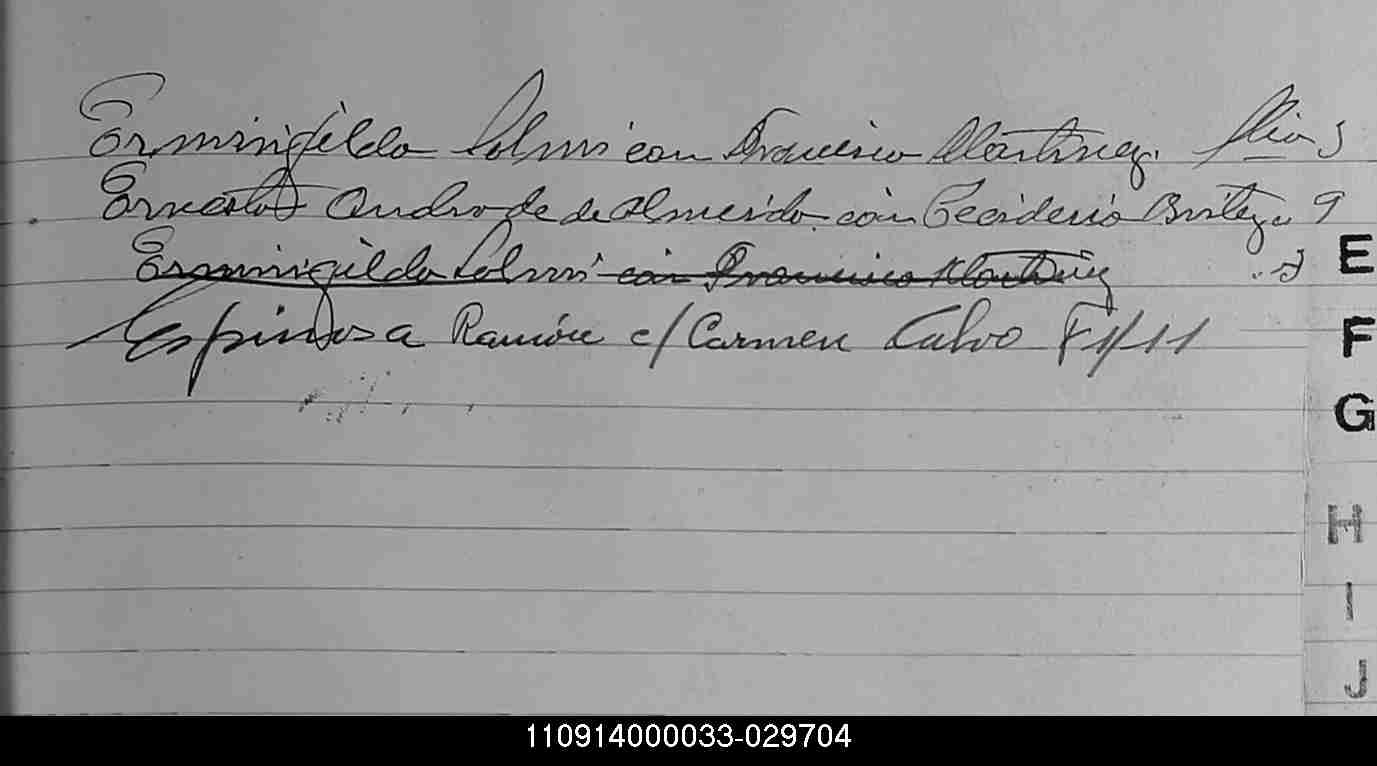 Erminigildo Solmi con Francisco Martinez. folio 3
Ernesto Andrade de Almeida con Decideria Brites 9
Erminigildo Solmi con Francisco Martinez 3
Espinosa Ramón c/ Carmen Calvo F 11/11
E
F
G
H
I
J
110914000033-029704